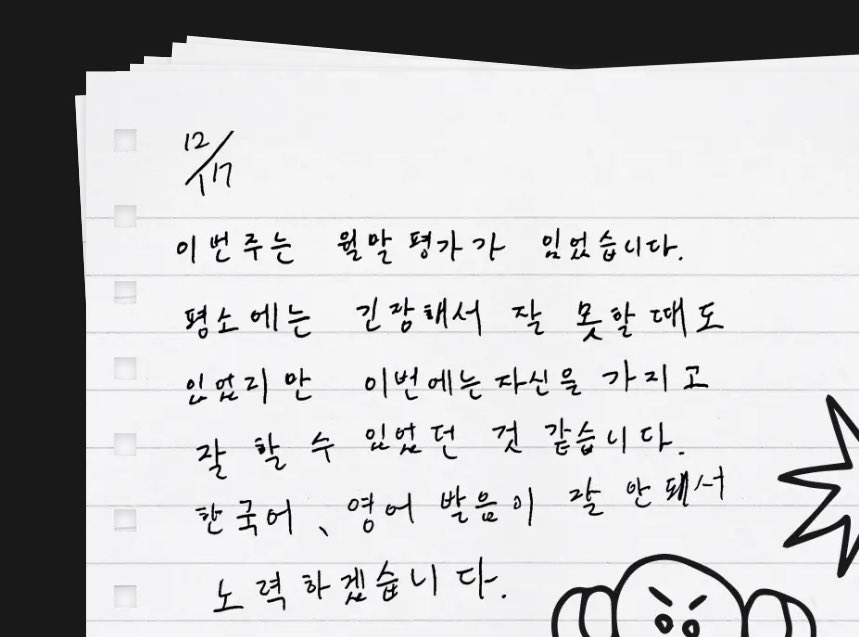 12/17
이번주는 월말 평가가 있었습니다.
평소에는 긴장해서 잘 못할 때도
있었지만 이번에는 자신을 가지고
잘 할 수 있었던 것 같습니다.
한국어、영어 발음이 잘 안돼서
노력하겠습니다.